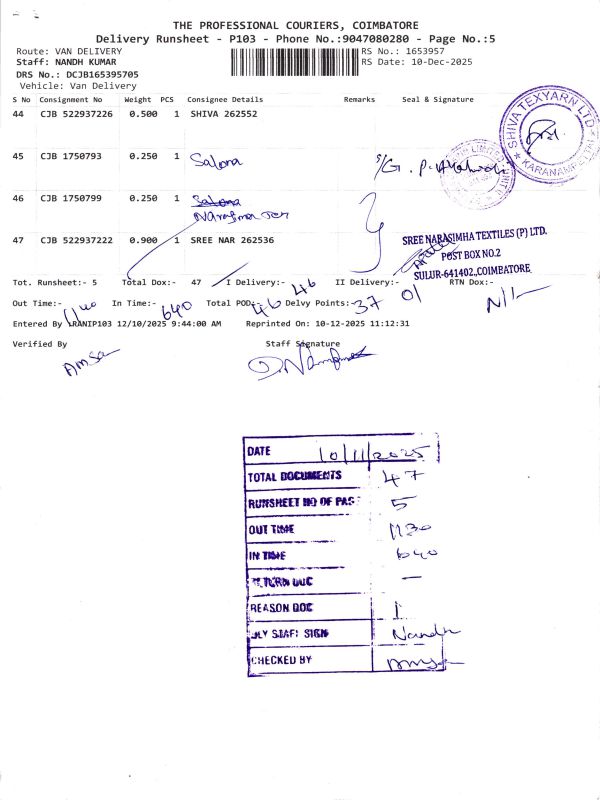 THE PROFESSIONAL COURIERS, COIMBATORE
Delivery Runsheet - P103 - Phone No.:9047080280 - Page No.:5
Route: VAN DELIVERY
RS No.: 1653957
Staff: NANDH KUMAR
RS Date: 10-Dec-2025
DRS No.: DCJB165395705
Vehicle: Van Delivery
S No Consignment No Weight PCS Consignee Details Remarks Seal & Signature
44 CJB 522937226 0.500 1 SHIVA 262552
SHIVA TEXYARN LTD
KARANAMP
45 CJB 1750793 0.250 1 Salona
46 CJB 1750799 0.250 1 Salona
47 CJB 522937222 0.900 1 SREE NAR 262536
SREE NARASIMHA TEXTILES (P) LTD.
POST BOX NO.2
SULUR-641402,COIMBATORE
Tot. Runsheet:- 5 Total Dox:- 47 I Delivery:- 46 II Delivery:- 01 RTN Dox:- N/L
Out Time:- 1140 In Time:- 640 Total POD:- 46 Delvy Points:- 37
Entered By :RANIP103 12/10/2025 9:44:00 AM Reprinted On: 10-12-2025 11:12:31
Verified By Staff Signature
DATE 10/11/2025
TOTAL DOCUMENTS 47
RUNSHEET NO OF PAG 5
OUT TIME 1130
IN TIME 640
RETURN DOC —
REASON DOC 1
DLY STAFF SIGN Nandh
CHECKED BY